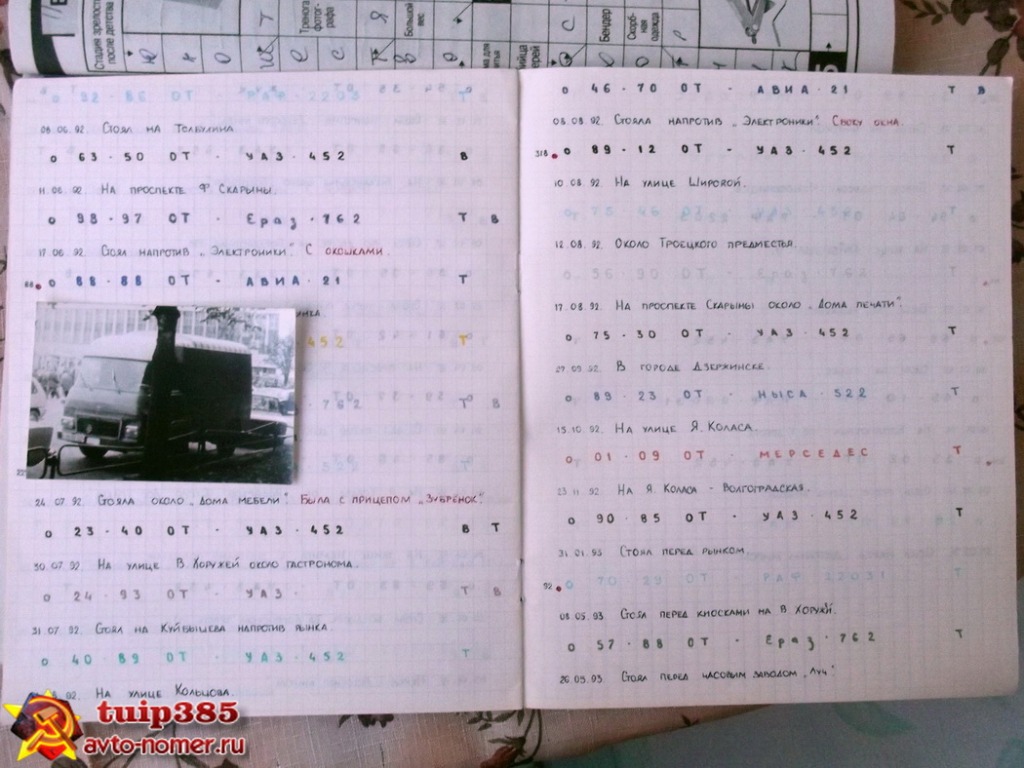 Стадия зрелости после детства
Тренога фотографа
Большой вес
Бендер
Скорбная одежда
08.06.92. Стоял на Толбухина
о 63-50 ОТ - УАЗ-452 В
11.06.92. На проспекте Ф. Скарыны.
о 98-97 ОТ - ЕрАЗ-762 Т В
17.06.92. Стоял напротив „Электроники". С окошками.
о 88-88 ОТ - АВИА-21 Т
452 Т
762 Т В
24.07.92. Стояла около „Дома мебели". Была с прицепом „Зубрёнок".
о 23-40 ОТ - УАЗ-452 В Т
30.07.92. На улице В. Хоружей около гастронома.
о 24-93 ОТ - УАЗ- Т В
31.07.92. Стоял на Куйбышева напротив рынка.
о 40-89 ОТ - УАЗ-452 Т
92. На улице Кольцова.
о 46-70 ОТ - АВИА-21 Т В
08.08.92. Стояла напротив „Электроники". Сбоку окна.
318. о 89-12 ОТ - УАЗ-452 Т
10.08.92. На улице Широкой.
12.08.92. Около Троецкого предместья.
о 56-90 ОТ - ЕрАЗ-762 Т
17.08.92. На проспекте Скарыны около „Дома печати".
о 75-30 ОТ - УАЗ-452 Т
27.09.92. В городе Дзержинске.
о 89-23 ОТ - НЫСА-522 Т
15.10.92. На улице Я. Коласа.
о 01-09 ОТ - МЕРСЕДЕС Т
23.11.92. На Я. Коласа - Волгоградская.
о 90-85 ОТ - УАЗ-452 Т
31.01.93. Стоял перед рынком.
92. о 70-29 ОТ - РАФ-22031 Т
08.05.93. Стоял перед киосками на В. Хоружей.
о 57-88 ОТ - ЕрАЗ-762 Т
26.05.93. Стоял перед часовым заводом „Луч"
tuip385
avto-nomer.ru